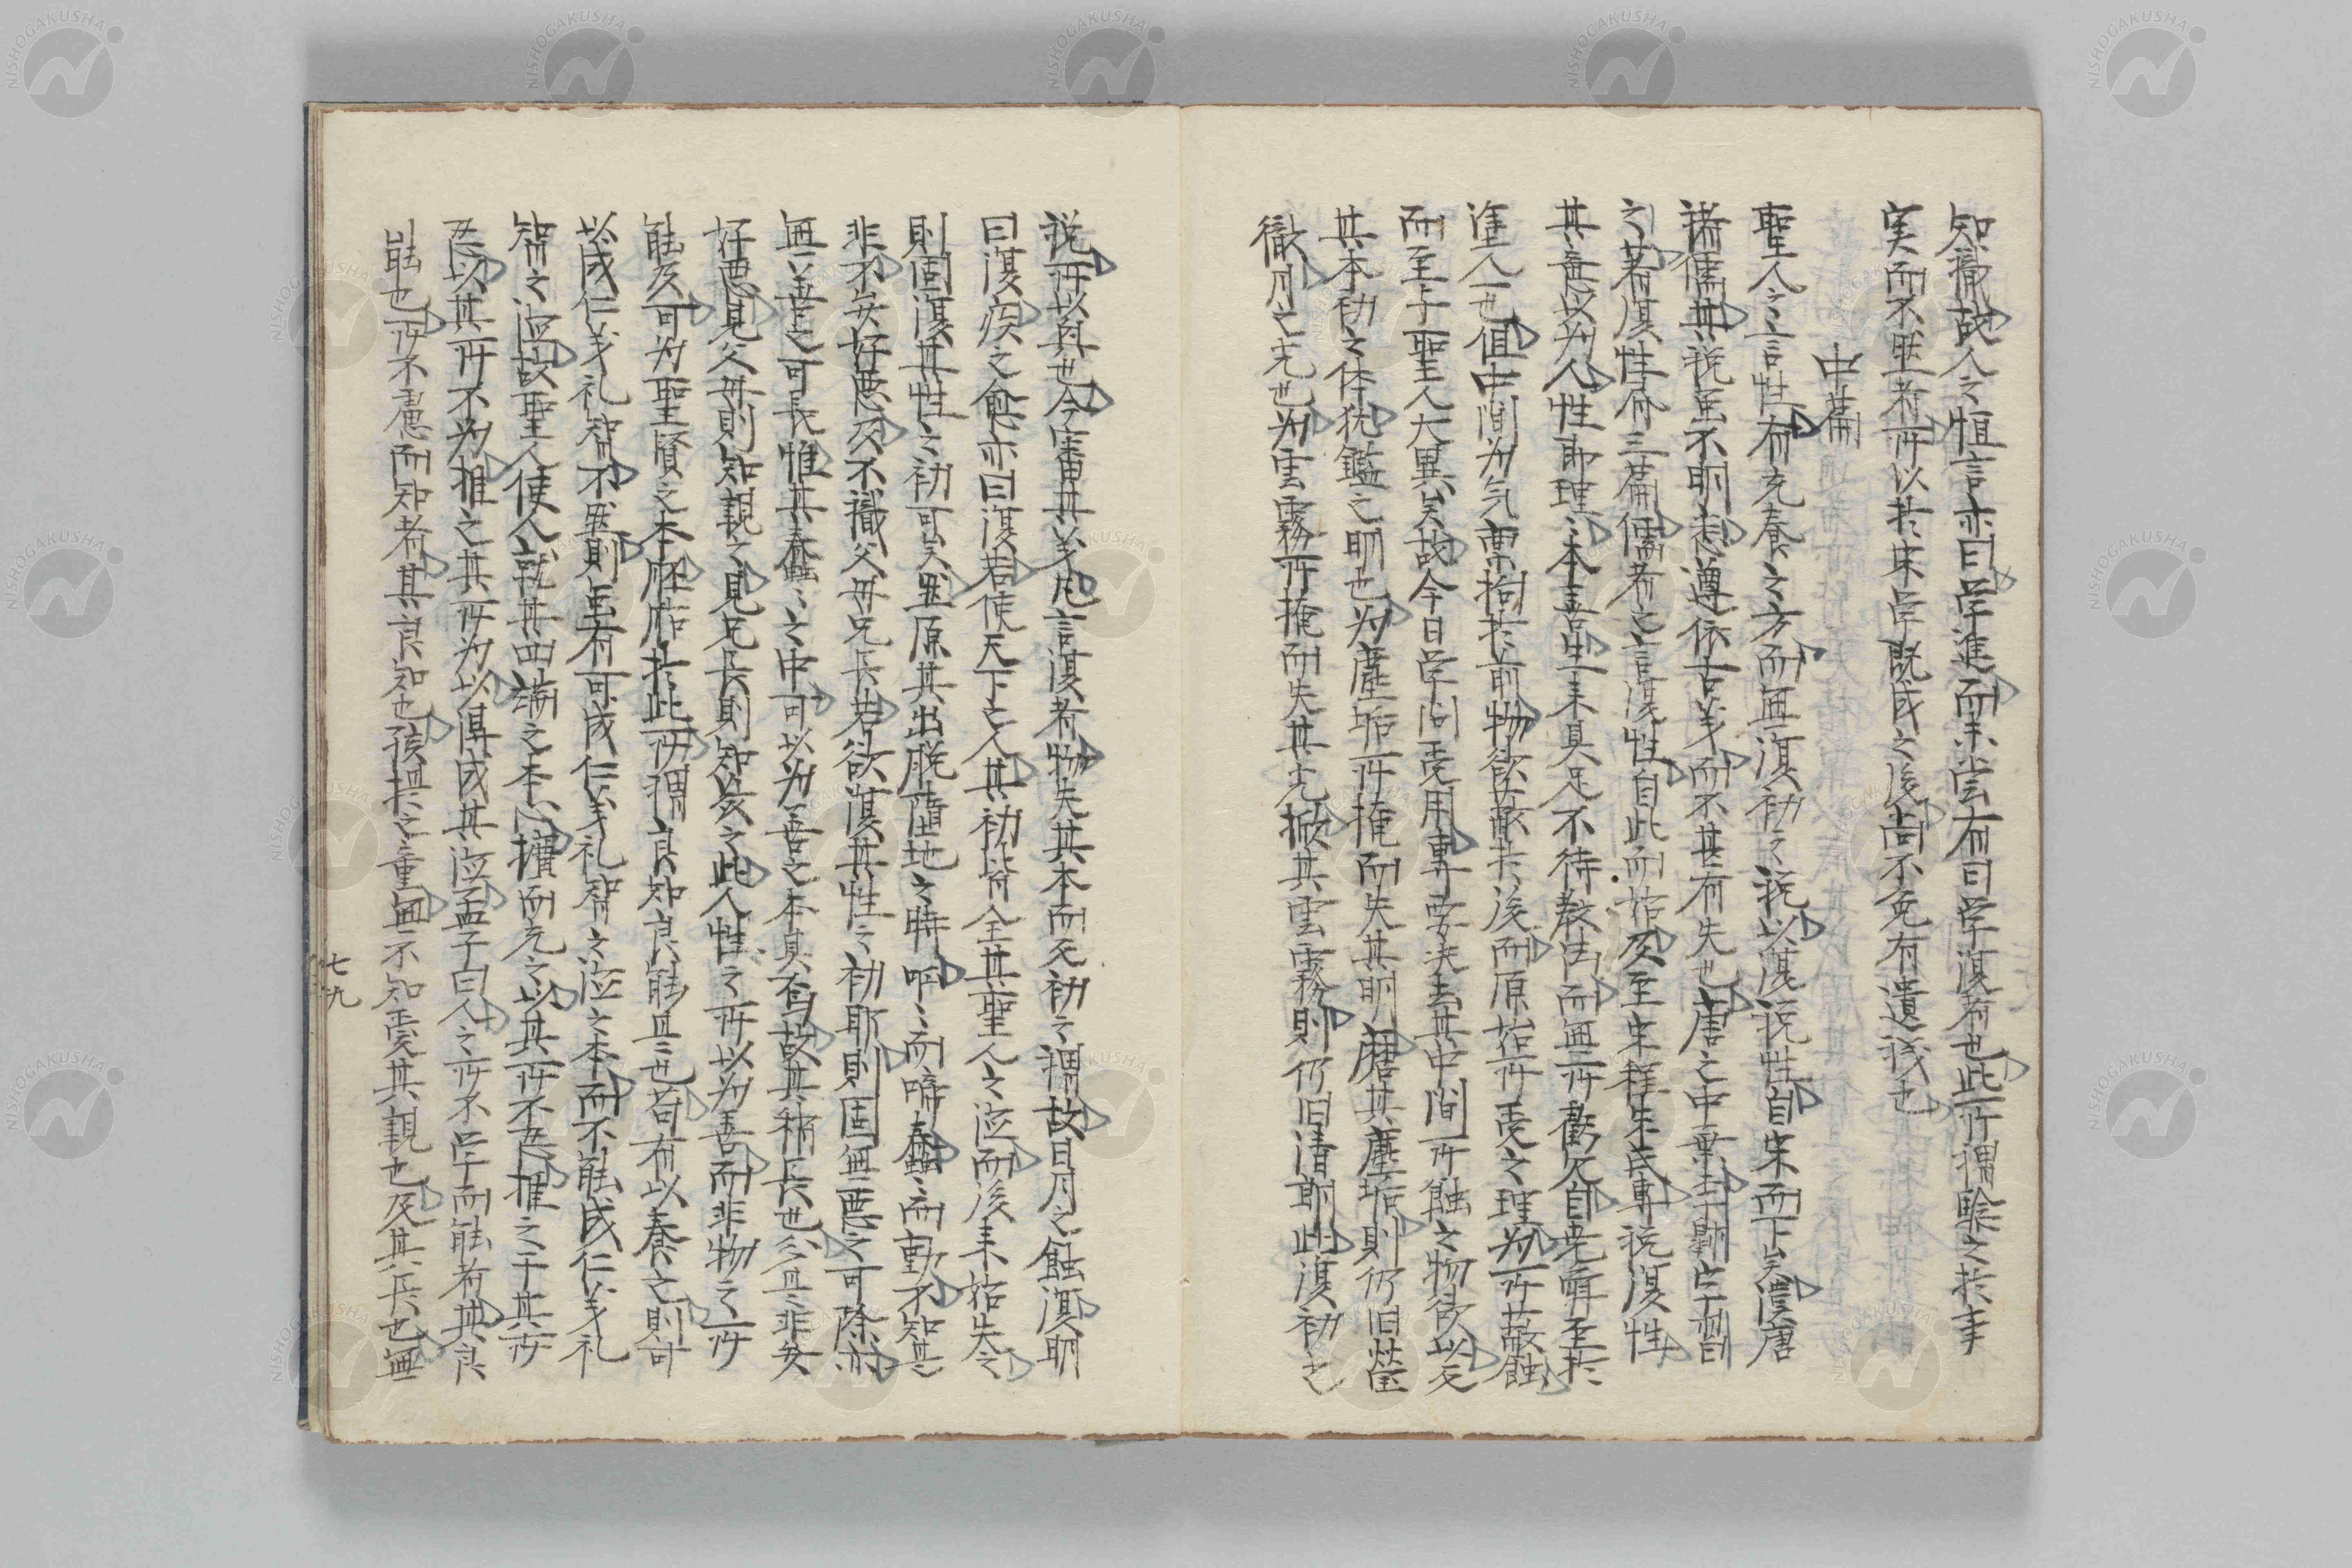 知識故人之恒言亦曰学進而未嘗有曰学復者也此所謂験之於事
実而不熈者所以於宋学既成之後尚不免有遺議也
中篇
聖人之言性有充養之方而無復初之説以復説性自宋而下矣漢唐
諸儒其説虽不明悉遵依古義而不甚有失也唐之中葉李翺字習
之著復性府三篇儒者之言復性自此而始及至宋程朱氏専説復性
其意以為人性即理〻本善生来具足不待教法而無所虧欠自尭舜至於
塗人一也但中間為気稟拘於前物欲蔽於後而原始所受之理為所蔽蝕
而至与聖人大異矣故今日学問受用専要決去其中間所蝕之物欲以反
其本初之体犹鑑之明也为塵垢所掩而失其明磨其塵垢則仍旧瑩
徹月之光也为雲霧所掩而失其光撥其雲霧則仍旧清朗此復初之
説所以興也今審其義凡言復者物失其本而反初之謂故日月之蝕復明
曰復疾之愈亦曰復若使天下之人其初皆全其聖人之徳而後来始失之
則固復其性之初可矣然原其出脱堕地之時呱〻而啼蠢〻而動不知其
非不安好悪又不識父母兄長若欲復其性之初耶則固無悪之可除亦
無善之可長惟其蠢蠢〻之中可以为善之本具焉故其稍長也冬且之非安
好悪見父母則知親之見兄長則知敬之此人性之所以为善而非物之所
能及可为聖賢之本胚胎於此所謂良知良能且之也苟有以養之則可
以成仁義礼智不然則虽有可成仁義礼智之徳之本而不能成仁義礼
智之徳故聖人使人就其四端之本心擴而充之以其所不忍推之于其所
忍以其所不为推之其所为以得成其徳孟子曰人之所不学而能者其良
能也所不慮而知者其良知也孩提之童無不知愛其親也及其長也無
七九